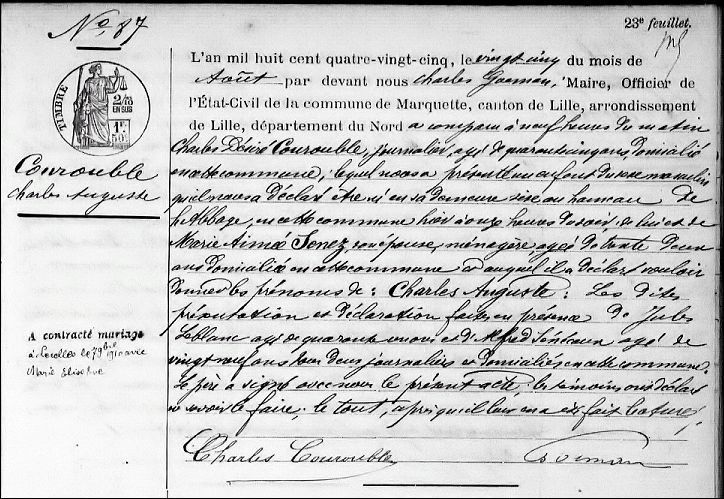 No. 87
23e feuillet.
TIMBRE
2/10
EN SUS
Courouble
Charles Auguste
L'an mil huit cent quatre-vingt-cinq, le vingt cinq du mois de
Août par devant nous Charles Maire, Officier de
l'État-Civil de la commune de Marquette, canton de Lille, arrondissement
de Lille, département du Nord a comparu à neuf heures du matin
Charles Désiré Courouble, journalier, agé de quarante cinq ans, domicilié
en cette commune, lequel nous a présenté un enfant du sexe masculin
qu'il nous a déclaré être né en sa demeure sise au hameau de
l'Abbaye, en cette commune hier à onze heures du soir, de lui et de
Marie Aimée Senez son épouse, ménagère, agée de trente deux
ans domiciliée en cette commune et auquel il a déclaré vouloir
donner les prénoms de : Charles Auguste : Les dites
présentation et déclaration faites en présence de Jules
Leblanc agé de quarante un ans et d'Alfred agé de
vingt neuf ans tous deux journaliers et domiciliés en cette commune.
Le père a signé avec nous le présent acte, les témoins ont déclaré
ne savoir le faire ; le tout, après qu'il leur en a été fait lecture
A contracté mariage
à le 7 9bre
Marie
Charles Courouble